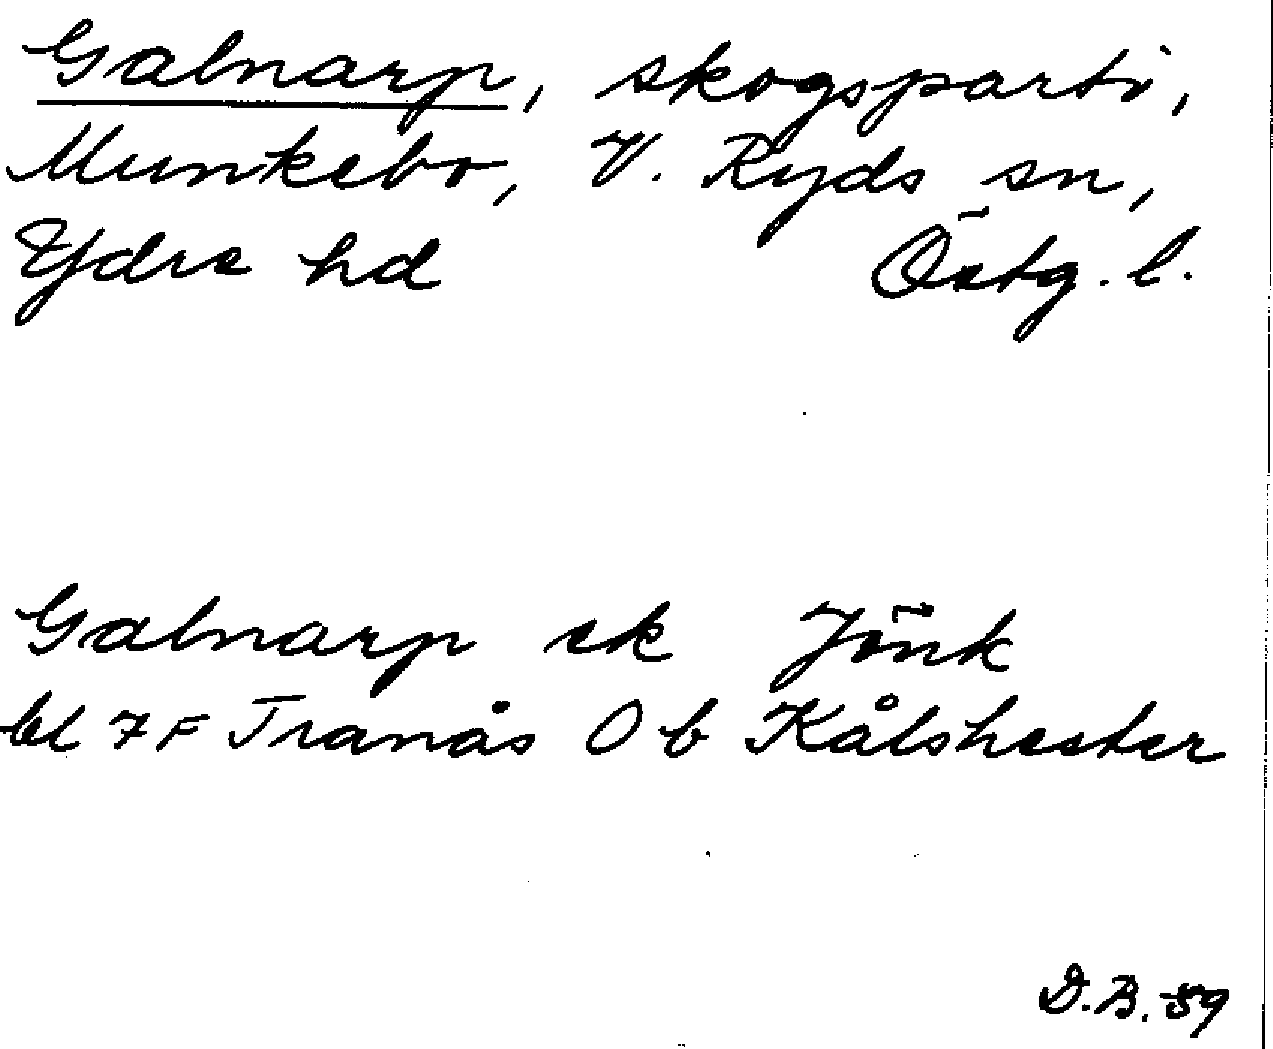 Galnarp, skogsparti,
Munkebo, V. Ryds sn,
Ydre hd Östg. l.
Galnarp ek Jönk
bl 7 F Tranås O b Kålshester
D.B. 59